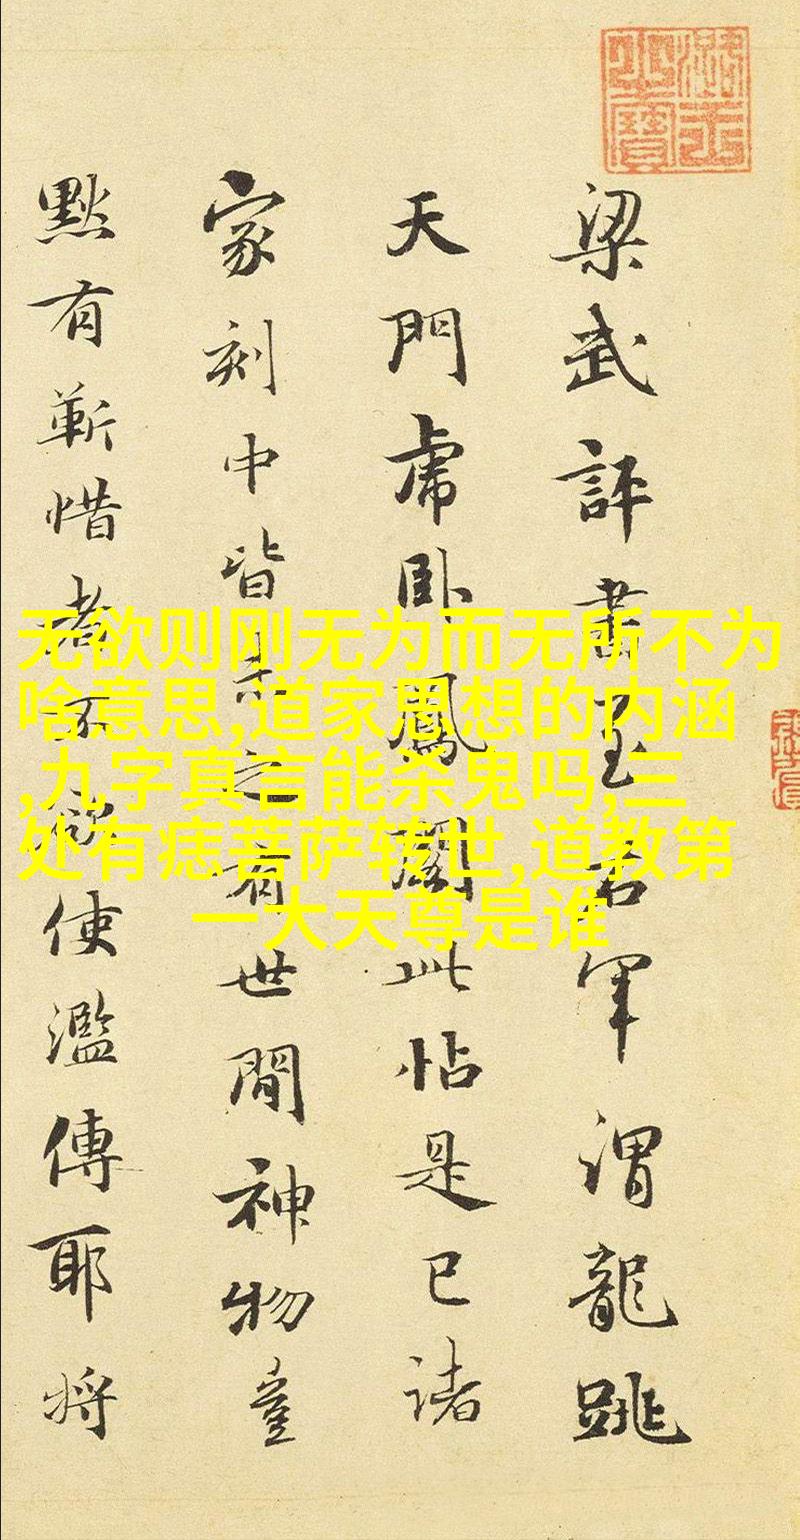 梁武評書至右軍謂龍跳
天門虎卧鳳閣此帖是已諸
家刻中皆未之有世間神物豈
黙有靳惜者不欲使濫傳耶將
无欲则刚无为而无所不为
啥意思,道家思想的内涵
,九字真言能杀鬼吗,三
处有痣菩萨转世,道教第
一大天尊是谁